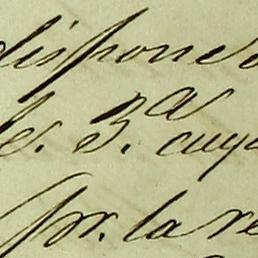 dispone
le. 3.a cuya
pr. la re